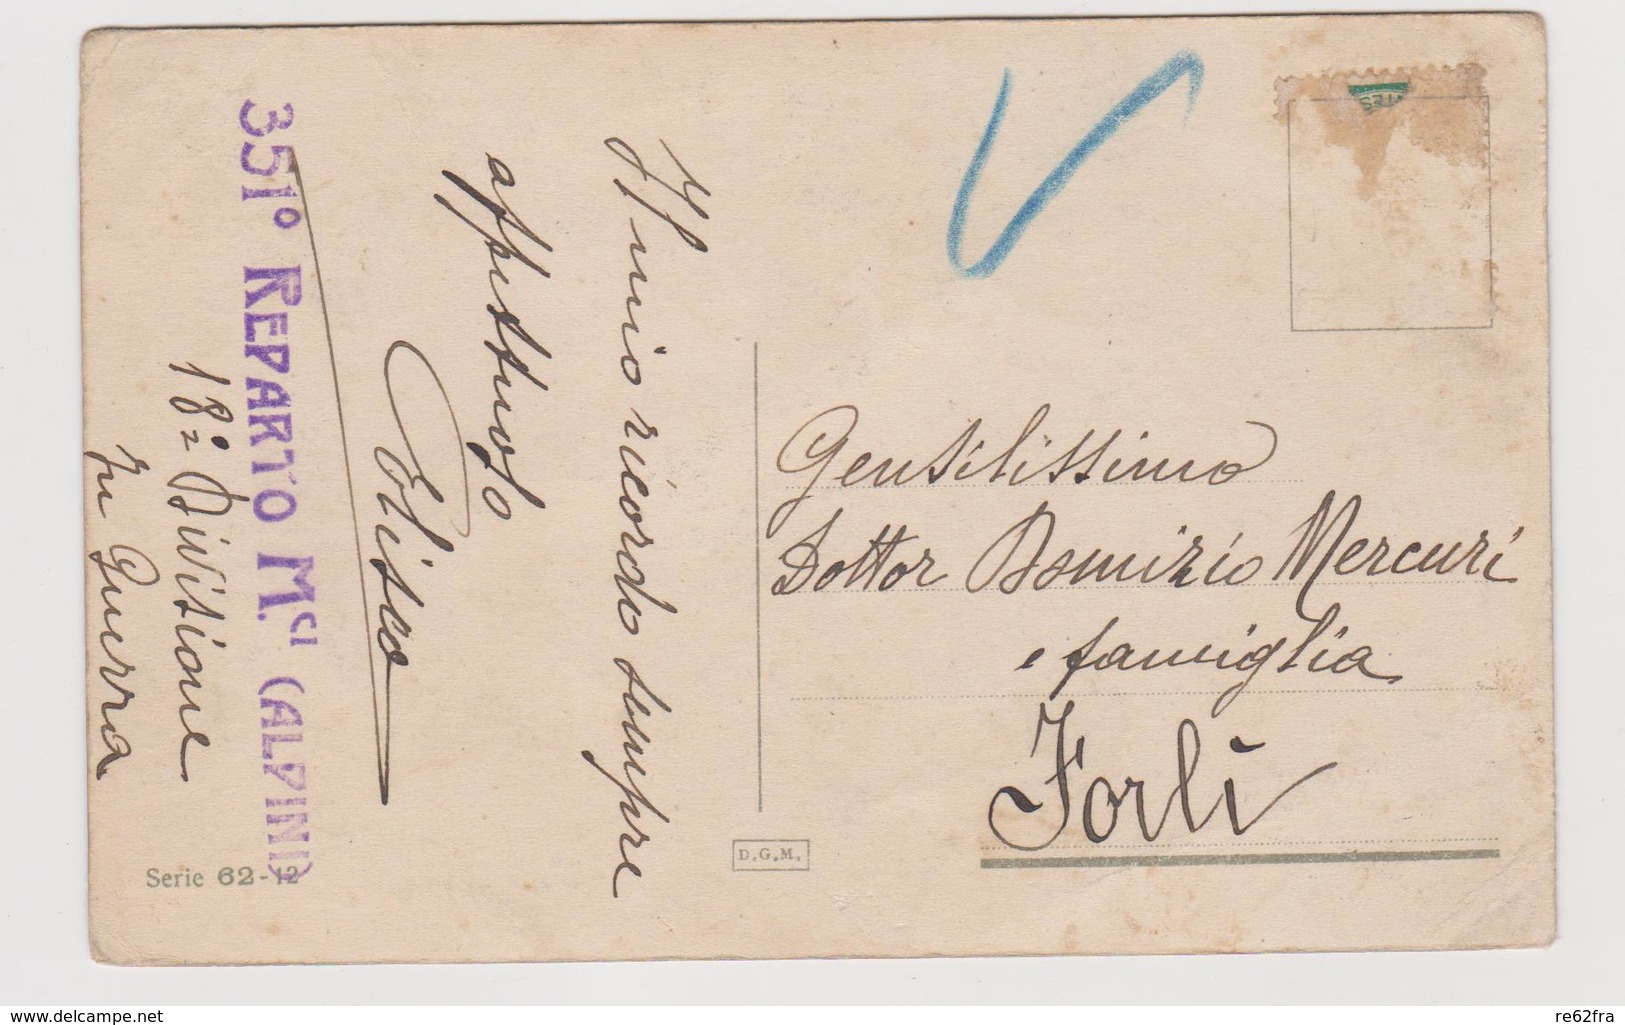 Il mio ricordo sempre
affettuoso
Eliseo
351º REPARTO M.CI (ALPINI)
18ª Divisione
In Guerra
Serie 62-12
D.G.M.
Gentilissimo
Dottor Domizio Mercuri
e famiglia
Forlì
www.delcampe.net
re62fra